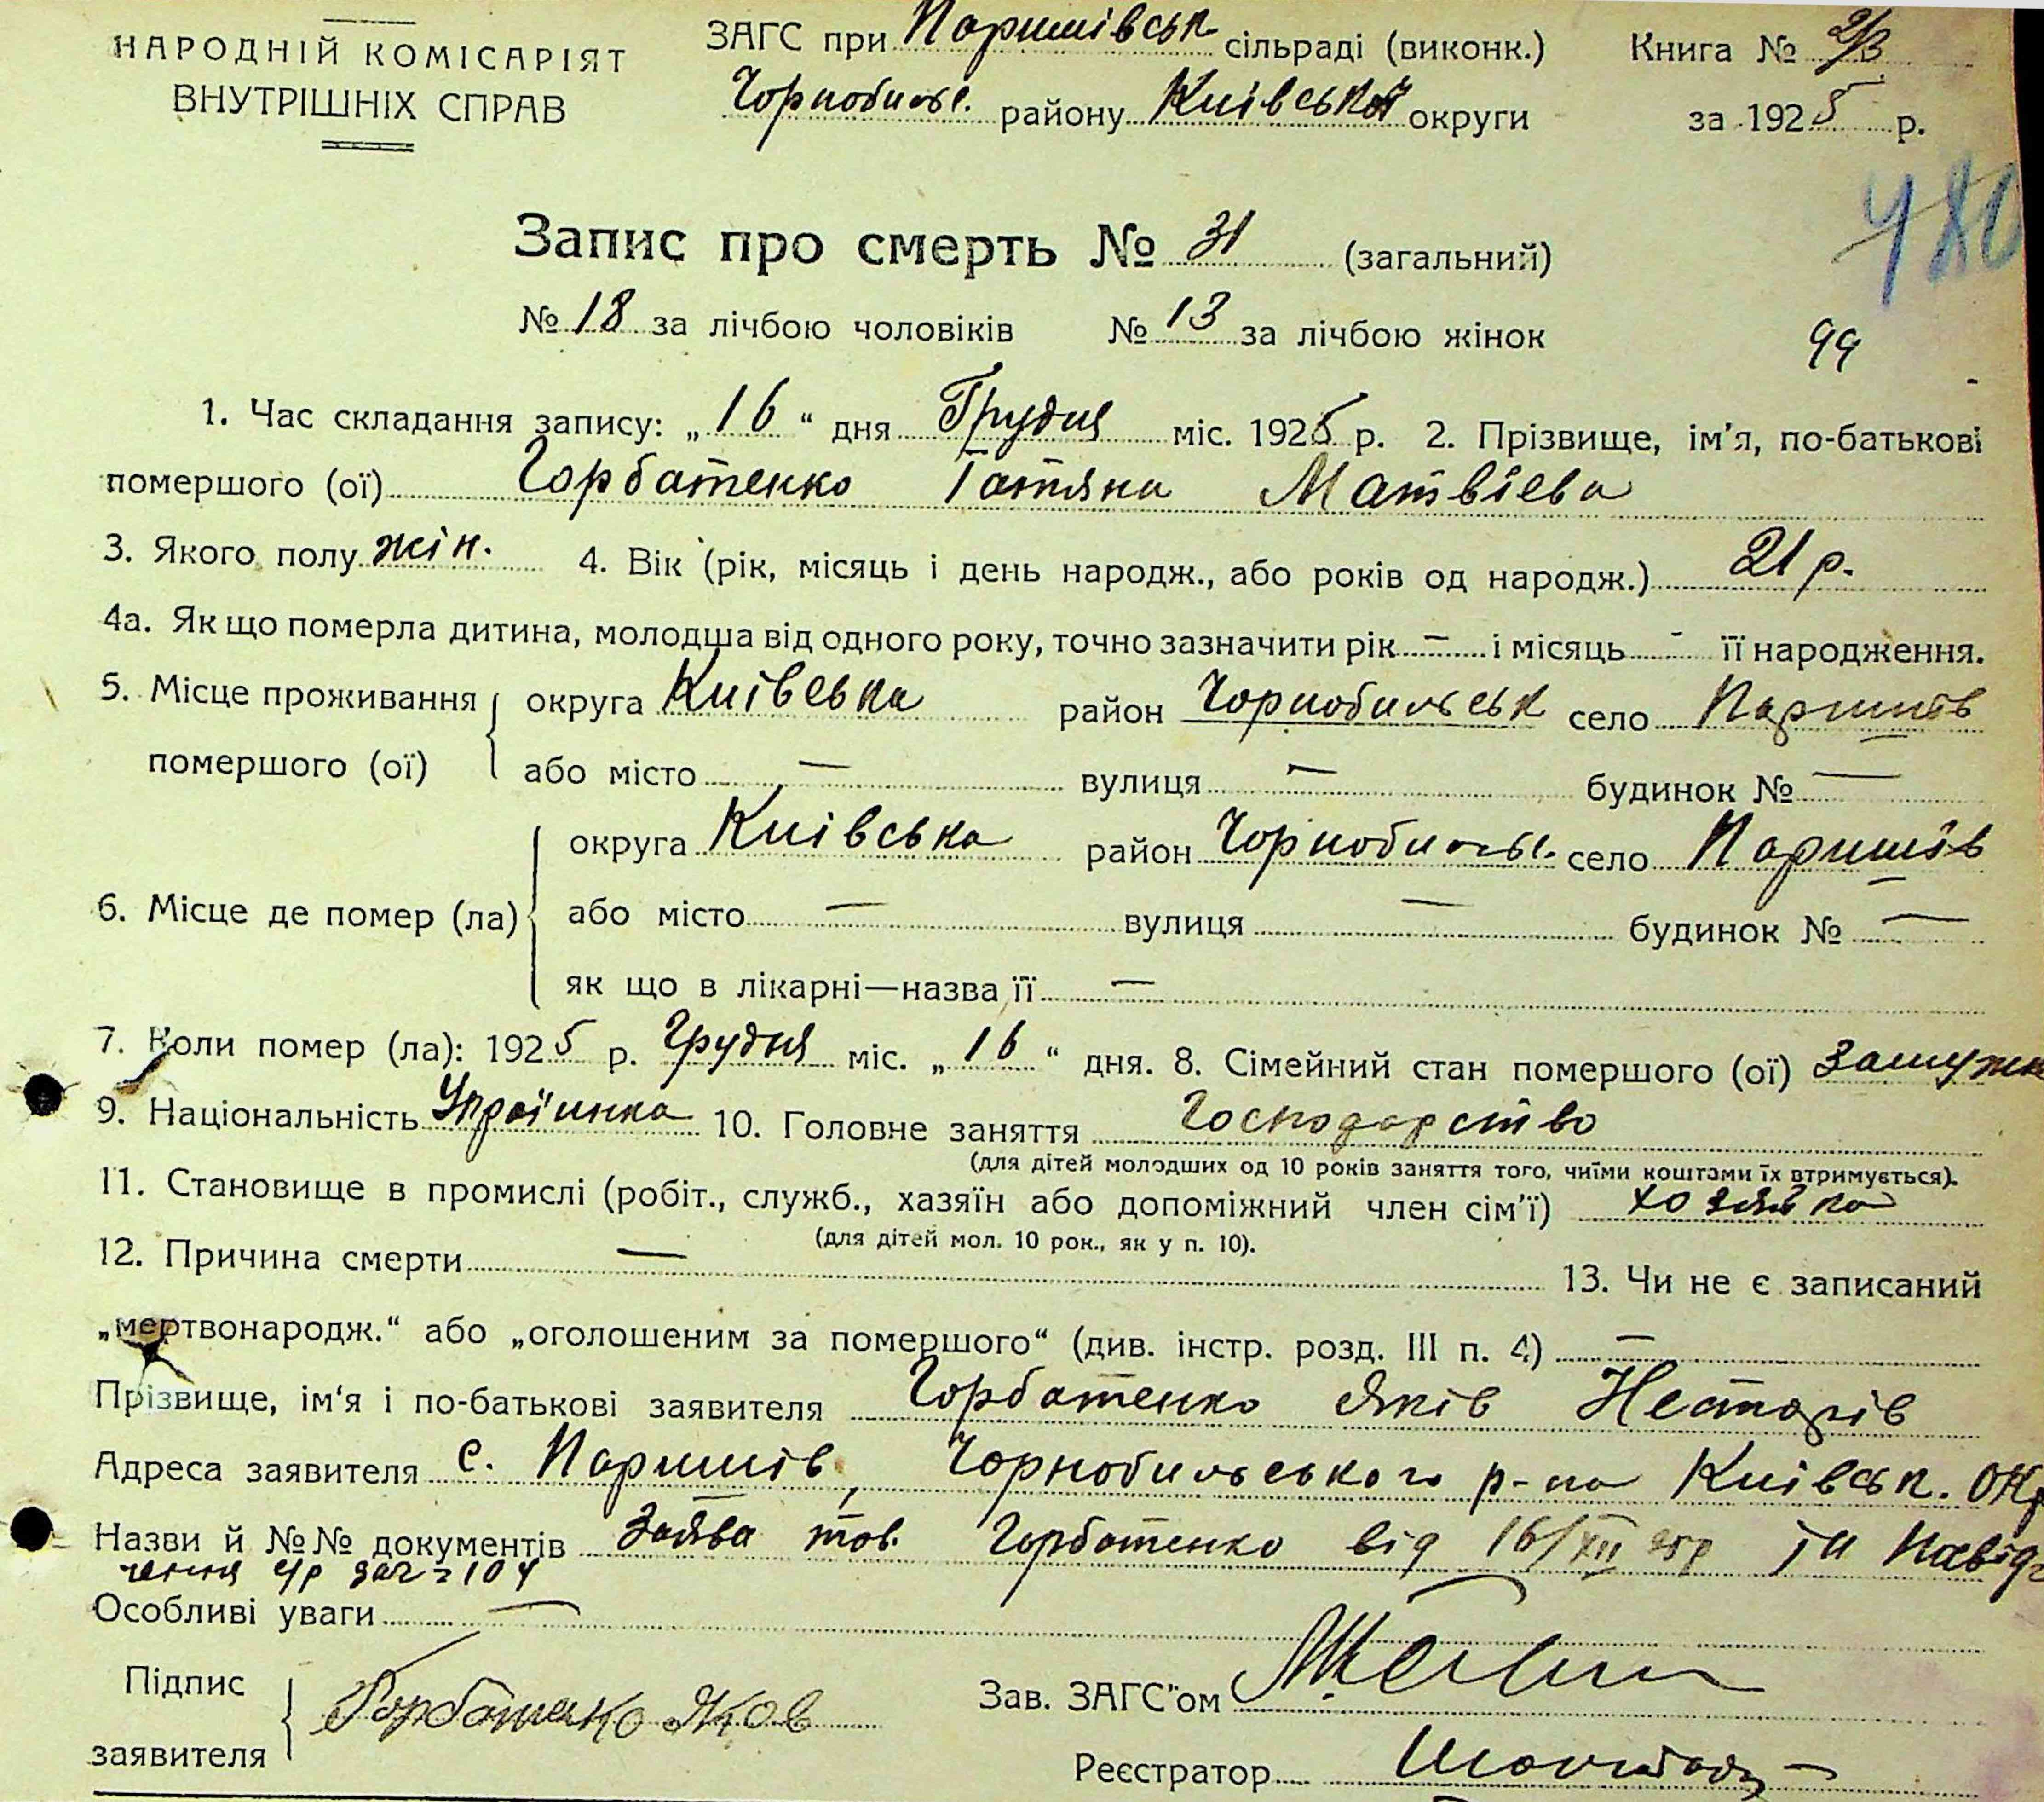 НАРОДНІЙ КОМІСАРІЯТ
ВНУТРІШНІХ СПРАВ
ЗАГС при Паришівськ сільраді (виконк.)
Чорнобильс. району Київської округи
Книга № 2/3
за 1925 р.
480
Запис про смерть № 31 (загальний)
№ 18 за лічбою чоловіків № 13 за лічбою жінок
99
1. Час складання запису: „16“ дня Грудня міс. 1925 р. 2. Прізвище, ім'я, по-батькові
помершого (ої) Горбатенко Татяна Матвієва
3. Якого полу жін. 4. Вік (рік, місяць і день народж., або років од народж.) 21 р.
4а. Як що померла дитина, молодша від одного року, точно зазначити рік — і місяць - її народження.
5. Місце проживання округа Київська район Чорнобильськ село Паришів
помершого (ої) або місто — вулиця — будинок № —
округа Київська район Чорнобильс. село Паришів
6. Місце де помер (ла) або місто — вулиця — будинок № —
як що в лікарні—назва її —
7. Коли помер (ла): 1925 р. Грудня міс. „16“ дня. 8. Сімейний стан помершого (ої) Замужн
9. Національність Українка 10. Головне заняття Господарство
(для дітей молодших од 10 років заняття того, чиїми коштами їх втримується).
11. Становище в промислі (робіт., служб., хазяїн або допоміжний член сім'ї) хозяйка
(для дітей мол. 10 рок., як у п. 10).
12. Причина смерти — 13. Чи не є записаний
„мертвонародж.“ або „оголошеним за помершого“ (див. інстр. розд. III п. 4) —
Прізвище, ім'я і по-батькові заявителя Горбатенко Яків Несторів
Адреса заявителя с. Паришів, Чорнобильського р-на Київськ. окр
Назви й №№ документів Заява тов. Горбатенко від 16/XII 25р
Особливі уваги —
Підпис
заявителя Горбатенко Яков
Зав. ЗАГС"ом
Реєстратор